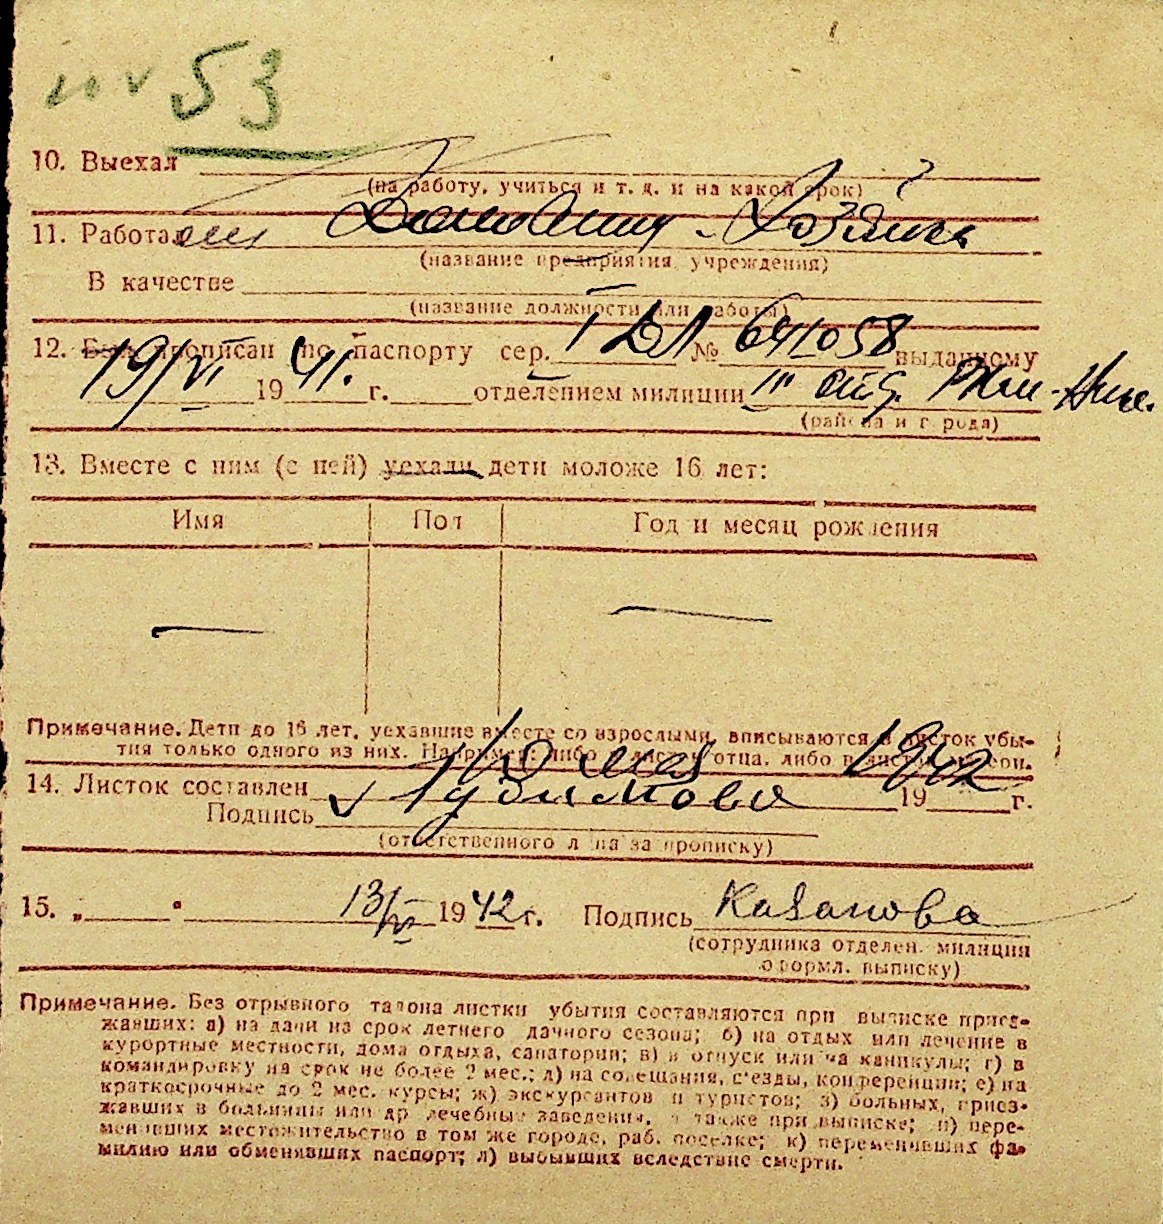 53
10. Выехал
(на работу, учиться и т. д. и на какой срок)
11. Работал Домашняя-хозяйка
(название предприятия, учреждения)
В качестве
(название должности или работы)
12. Был прописан по паспорту сер. I ДЛ № 641058 выданному
19/VI 1941. г. отделением милиции III отд.
(района и города)
13. Вместе с ним (с ней) уехали дети моложе 16 лет:
Имя Пол Год и месяц рождения
— —
Примечание. Дети до 16 лет, уехавшие вместе со взрослыми, вписываются в листок убы-
тия только одного из них. Например: либо в листок отца, либо в листок матери.
14. Листок составлен 10 мая 1942 19 г.
Подпись
(ответственного лица за прописку)
15. „ " 13/VI 1942 г. Подпись Казакова
(сотрудника отделен. милиции
оформл. выписку)
Примечание. Без отрывного талона листки убытия составляются при выписке приез-
жавших: а) на дачи на срок летнего дачного сезона; б) на отдых или лечение в
курортные местности, дома отдыха, санатории; в) в отпуск или на каникулы; г) в
командировку на срок не более 2 мес.; д) на совещания, съезды, конференции; е) на
краткосрочные до 2 мес. курсы; ж) экскурсантов и туристов; з) больных, приез-
жавших в больницы или др. лечебные заведения, а также при выписке; и) пере-
менивших местожительство в том же городе, раб. поселке; к) переменивших фа-
милию или обменявших паспорт; л) выбывших вследствие смерти.